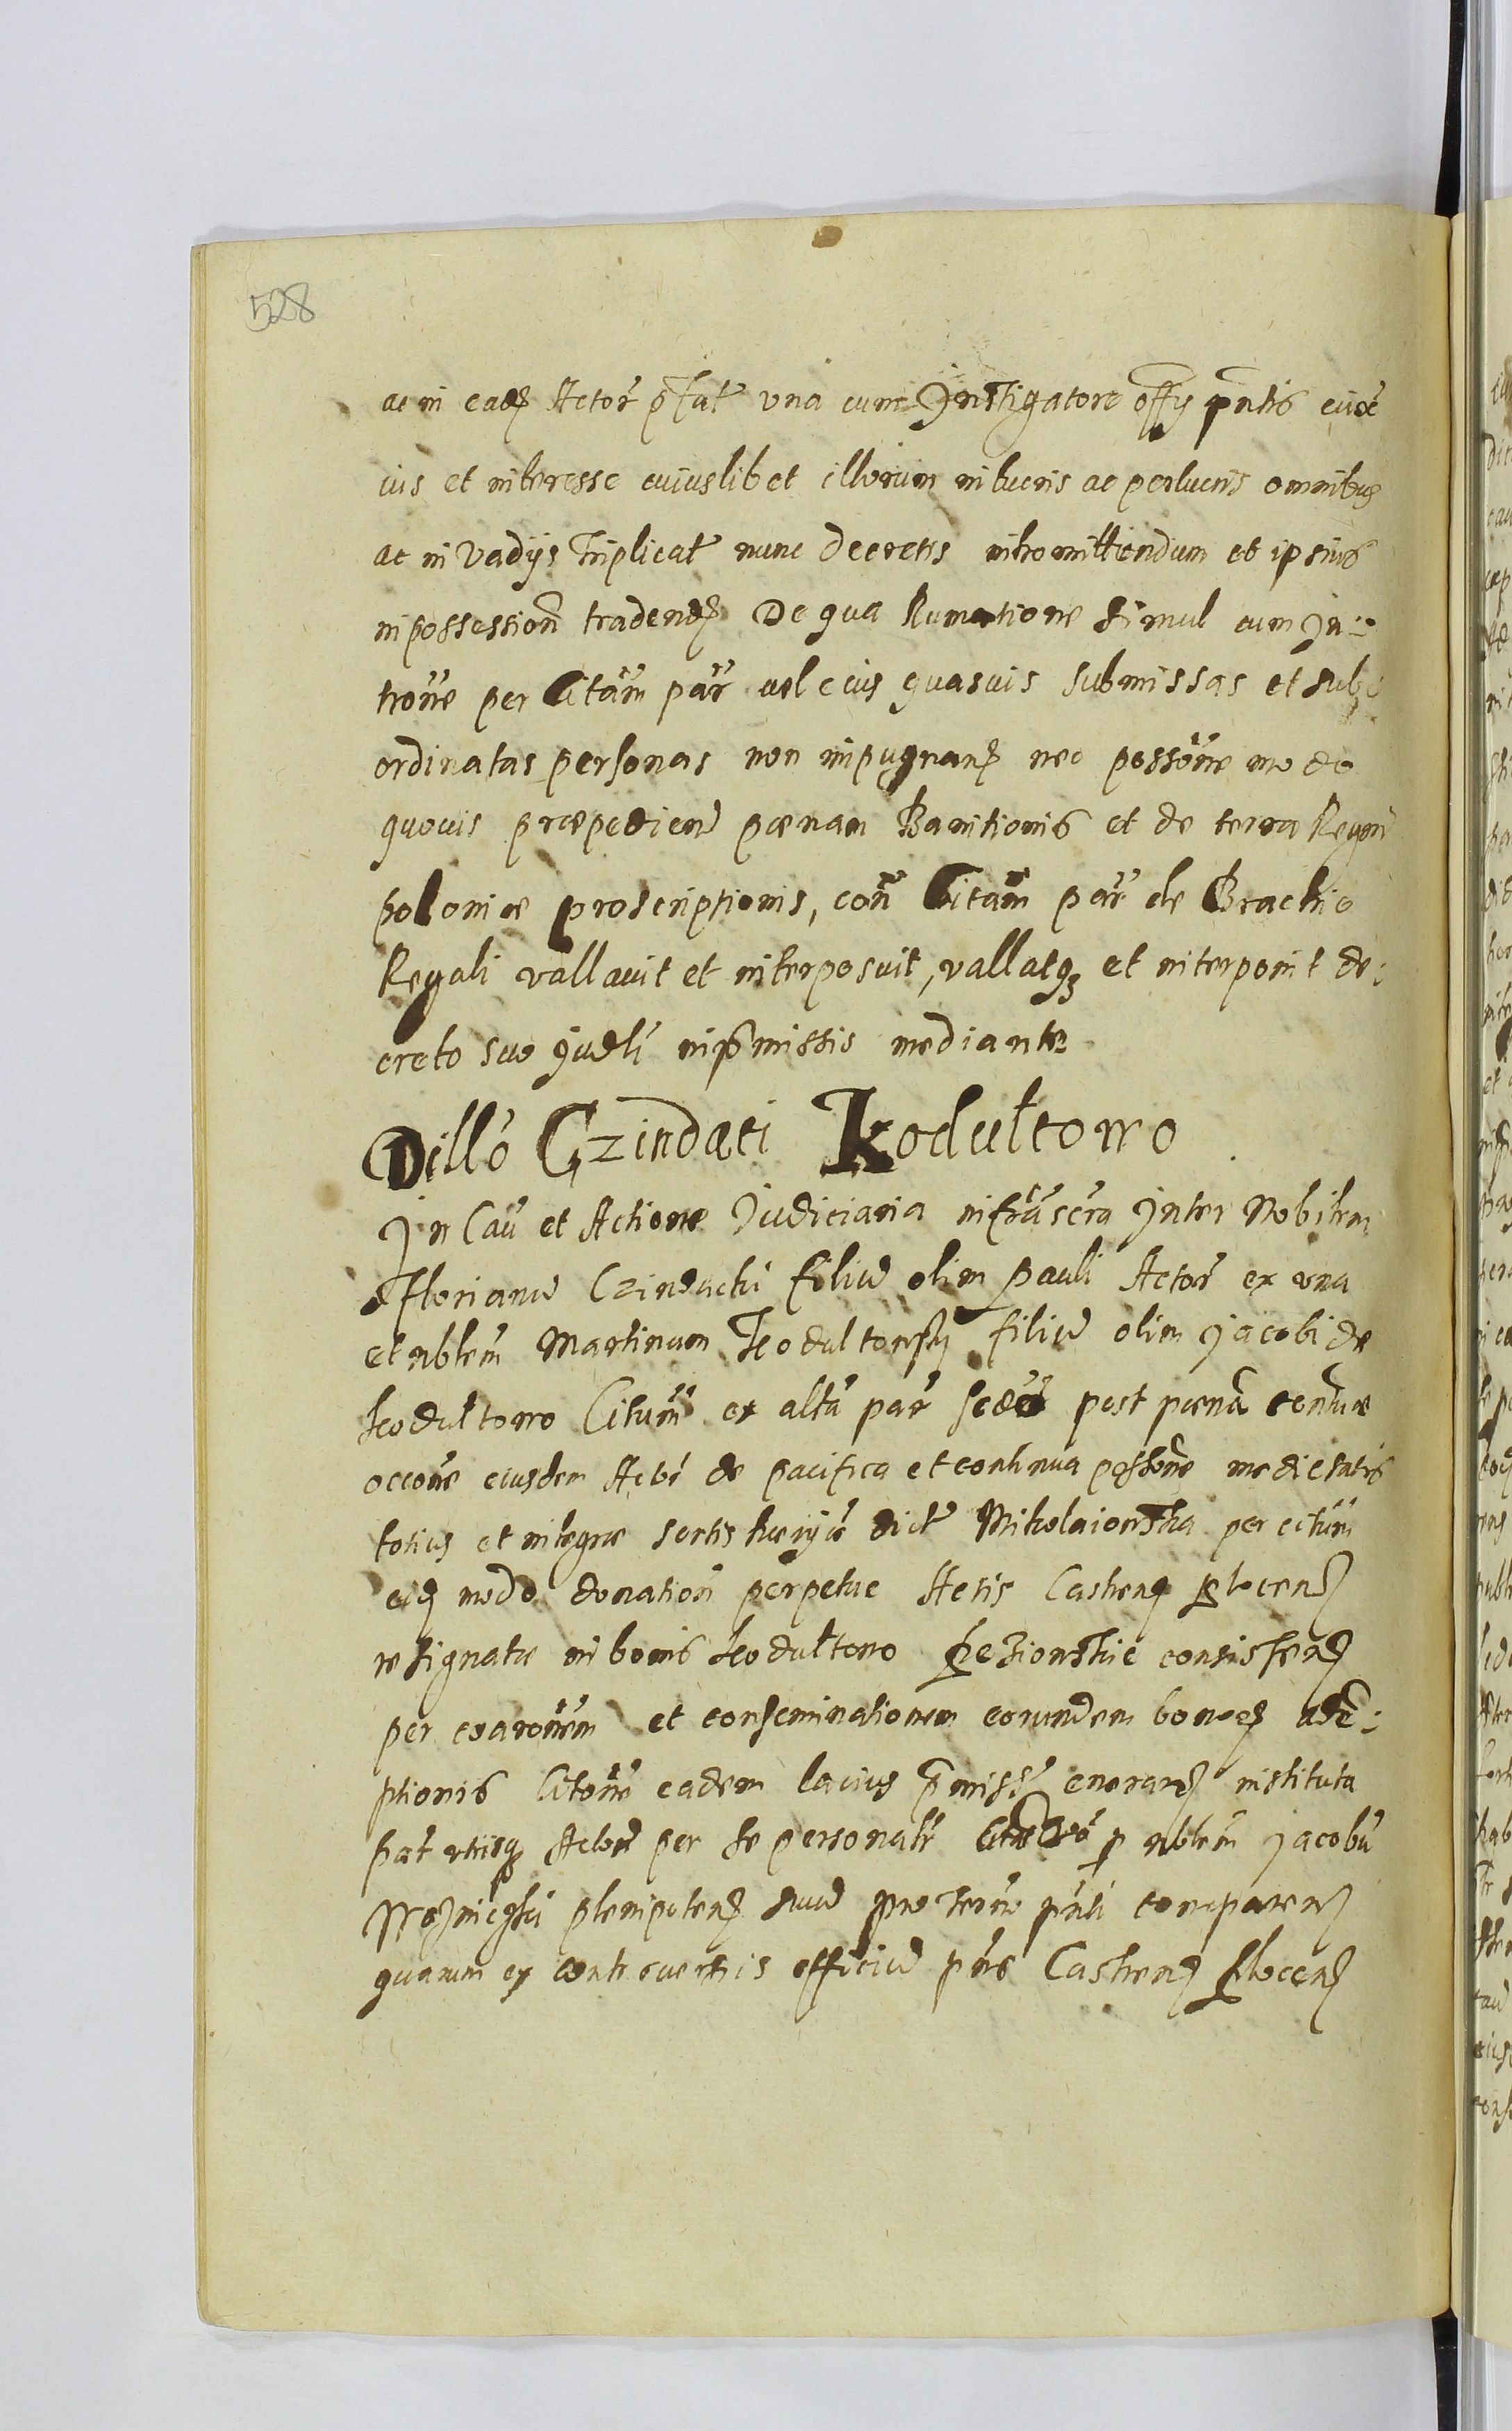 528
ac in eadẽ Actor̃ p̃fat̃ vna cum Instigatore offỹ pñtis
ius et interesse cuiuslibet illorum in lucris ac perlucris omnibus
ac in vadijs Triplicat̃ nunc decretis intromittendum et ipsius
in possession̄ tradend De qua Rumatione simul cum In-
trom̃e per Citatã par̃ vel eius quasuis submissas et sub-
ordinatas personas non impugnand nec possõne modo
quouis præpediend pænam Banitionis et de terra Regni
poloniæ proscriptionis, con̄ Citatã par̃ de Brachio
Regali vallauit et interposuit, vallatq3 et interponit de:
creto suo Judĩi in p̃missis mediante
Dillõ Czindaci Kodułtowo
In Caũ et Actione Judiciaria infrascrã Inter Nobilem
Florianũ Czindacki filiũ olim Pauli Actor̃ ex vna
et nblẽm Martinum Kodultowsky filiũ olim Jacobi de
Kodułtowo Citum̃ ex altã par̃ post pæna contuæ
occõne eiusdem Actõr de pacifica et continua possõne medietatis
totius et integræ sortis dict̃ Mikolaiowska per citum̃
modo donation̄ perpetuæ Actis Castren Plocen
resignatæ in bonis Kodułtowo consisten
per exarõnem et conseminationem eorundem bonor adẽ:
ptionis Citõne eadem lacius p̃miss̃ enarand instituta
par̃ vtrisq3 Actor̃ per se personalr̃ p nblẽm Jacobũ
plenipoten suũ pro termõ pñti comparen
quarum ex controuersiis officiũ pñs Castren Plocen